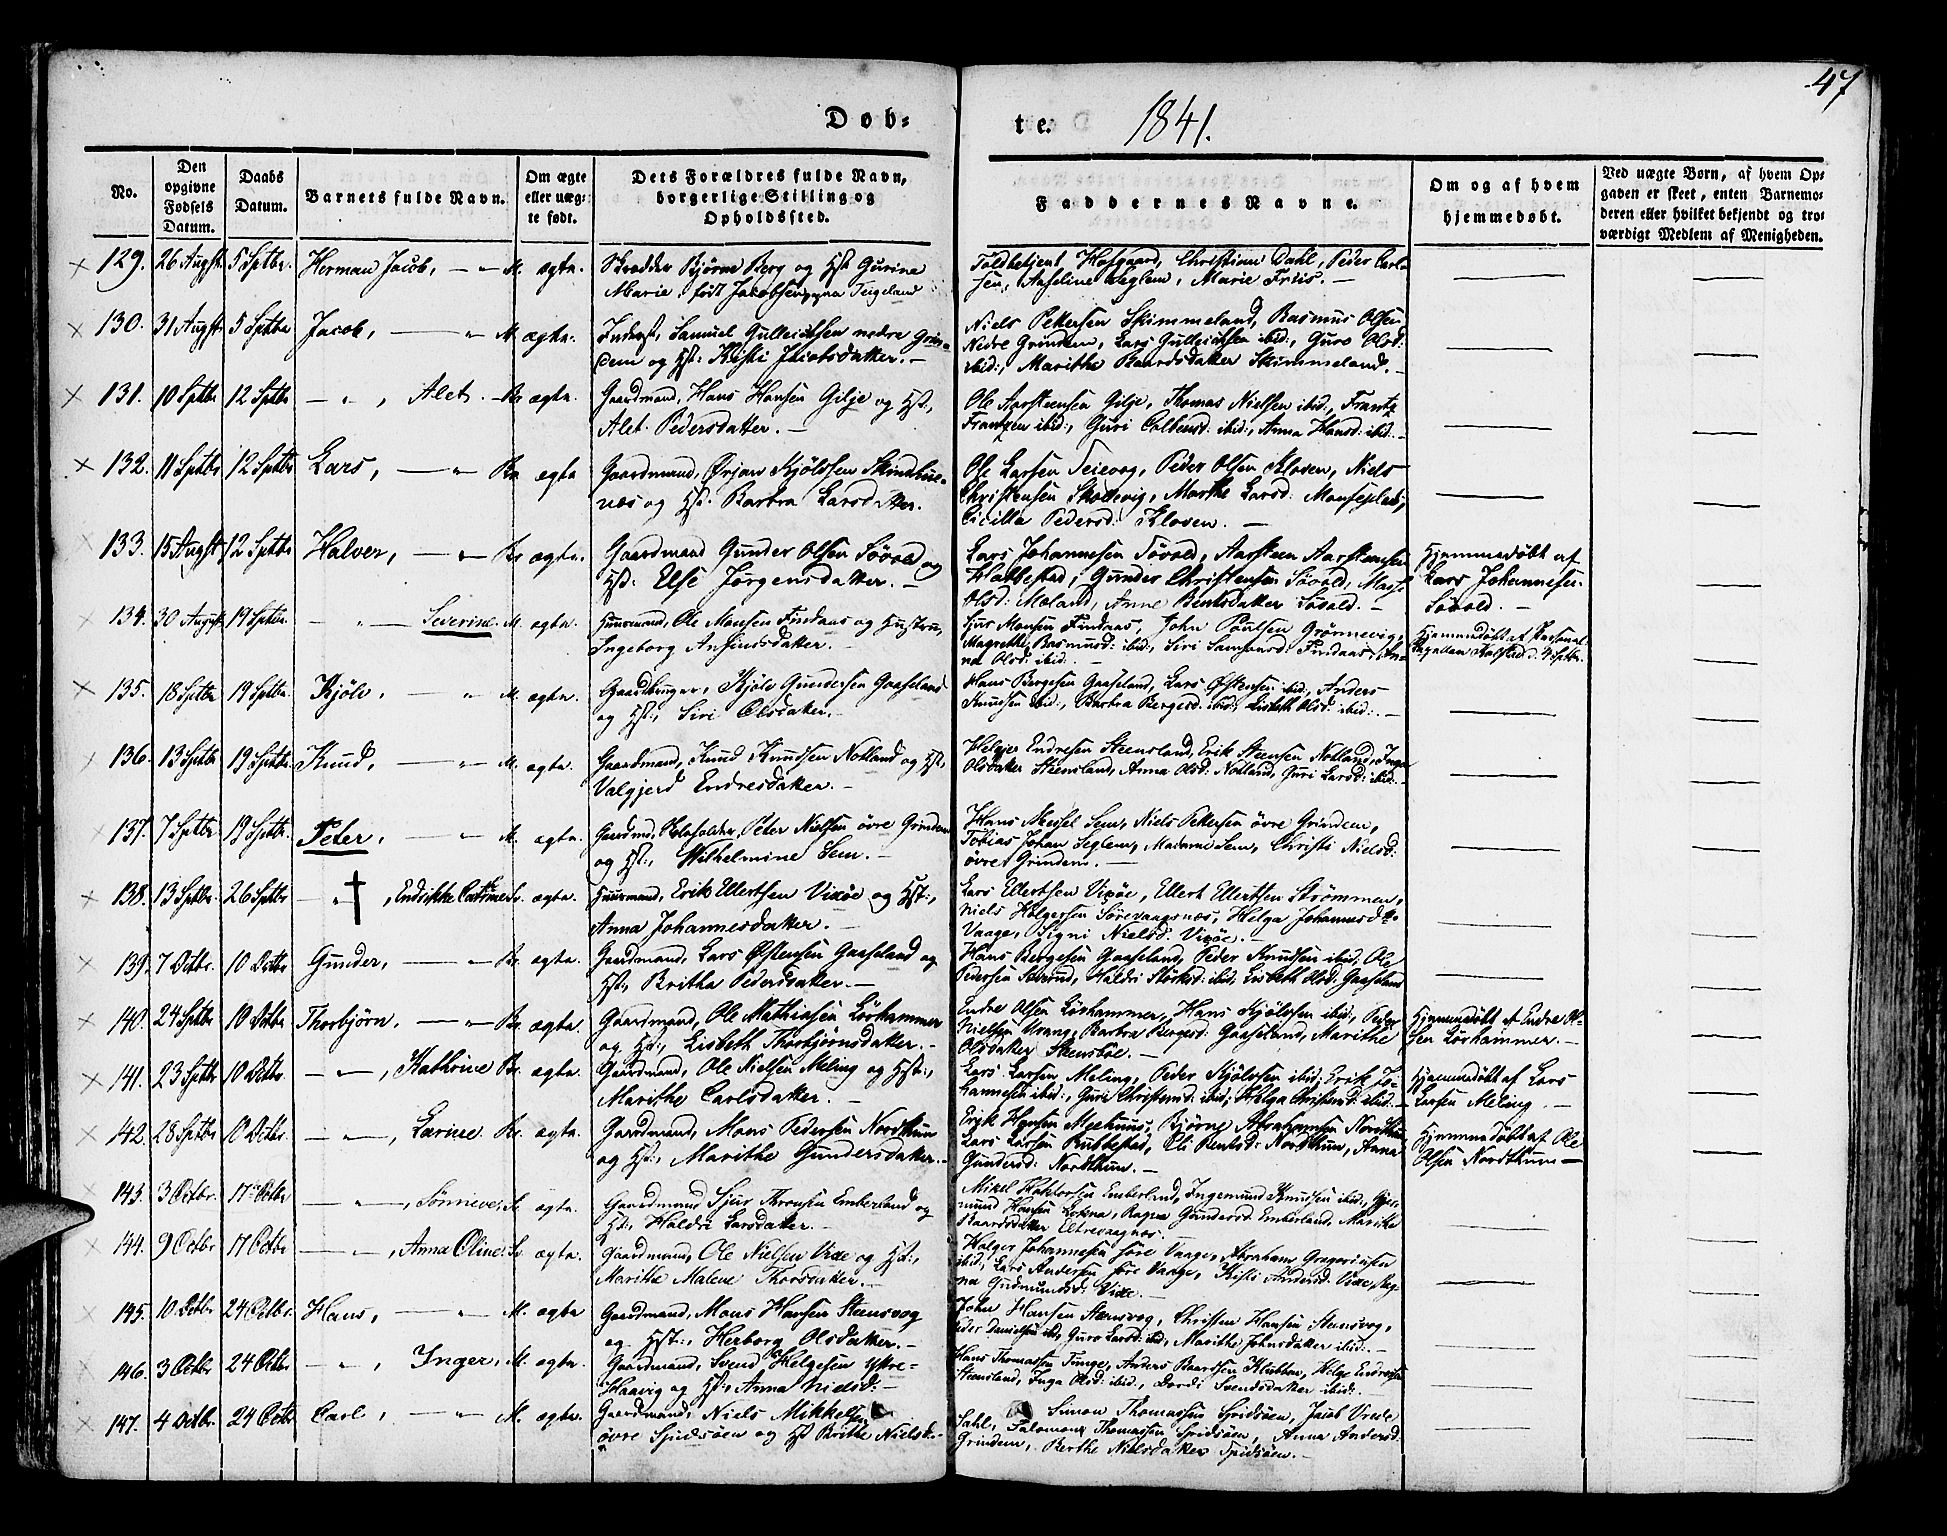 47
Døb-
te.
1841.
No.
Den opgivne Fødsels Datum.
Daabs Datum.
Barnets fulde Navn.
Om ægte eller uæg-te født.
Dets Forældres fulde Navn, borgerlige Stilling og Opholdssted.
Faddernes Navne.
Om og af hvem hjemmedøbt.
Ved uægte Børn, af hvem Op-gaven er skeet, enten Barnemo-deren eller hvilket bekjendt og tro-værdigt Medlem af Menigheden.
129. 26 Augst. 5 Sptbr. Herman Jacob, — " M. ægte. Skrædder Bjørne Berg og Hst. Gurina
Marie, født Jakobsen Teigeland
Toldbetjent Hofgaard, Christian Dahl, Peder Carl-
sen, Aaseline Seglem, Marie Friis. —
130. 31 Augst 5 Sptbr Jacob, — " M. ægte. Inderst, Samuel Gulleichsen nedre Grin-
dem og Hst: Kristi Jacobsdatter. —
Niels Pettersen Skimmeland, Rasmus Olsen
Nedre Grindem, Lars Gulleichsen ibid:, Guro Olsd:
ibid:, Marithe Baardsdatter Skimmeland. —
131. 10 Sptbr 12 Sptbr — " , Alet. Br ægte. Gaardmand, Hans Hansen Gilje og Hst:,
Alet Pedersdatter. —
Ole Aarstensen Gilje, Thomas Nielsen ibid:, Frantz
Frantzen ibid:, Guri Colbensd: ibid:, Anna Hansd: ibid: —
132. 11 Sptbr 12 Sptbr Lars, — " Br ægte Gaardmand, Ørjan Kjølsen
næs og Hst: Barbra Larsdatter.
Ole Larsen Teievog, Peder Olsen Kloven, Niels
Christensen Skottevig, Marthe Larsd:
Cicilla Pedersd: Kloven. —
133. 15 Augst 12 Sptbr Halver, — " Br ægte. Gaardmand Gunder Olsen Søvold og
Hst: Else Jørgensdatter. —
Lars Johannesen Søvold, Aarsteen Aarstensen
Habbestad, Gunder Christensen Søvold, Marte
Olsd: Moland, Anne Bentsdatter Søvold. —
Hjemmedøbt af
Lars Johannesen
Søvold. —
134. 30 August 19 Sptbr. — " Severine. M. ægte. Huusmand, Ole Monsen Findaas og Hustru,
Ingeborg Anfinnsdatter. —
Sjur Monsen Findaas, John Poulsen Grønnevig,
Magrethe Rasmusd: ibid:, Siri Samsonsd: Findaas, An-
na Olsd: ibid: —
Hjemmedøbt af Personal
Capellan d. 4 Sptbr.
135. 18 Sptbr 19 Sptbr. Kjøle, — " M. ægte. Gaardbruger, Kjøle Gundersen Gaaseland
og Hst:, Siri Olsdatter. —
Hans Bergesen Gaaseland, Lars Østensen ibid:, Anders
Knudsen ibid:, Barbra Bergesd: ibid:, Lisbeth Olsd: ibid: —
136. 13 Sptbr 19 Sptbr. Knud, — " M. ægte. Gaardmand, Knud Knudsen Notland og Hst:,
Valgjerd Endresdatter. —
Helgjer Endresen Steensland, Erik Steensen Notland, Inga
Olsdatter Steensland, Anna Olsd: Notland, Guri Larsd: ibid: —
137. 7 Sptbr. 19 Sptbr. Peter, — " M. ægte. Gaardmd, Peter Nielsen øvre Grindem
og Hst:, Wilhelmine Sem. —
Hans Meusel Sem, Niels Pettersen øvre Grindem,
Tobias Johan Seglem, Madame Sem, Christi Nielsd:
øvre Grindem. —
138. 13 Sptbr. 26 Sptbr — " , Endrikke Cathrine Sr. ægte. Huusmand, Erik Ellertsen Vixøe og Hst:,
Anna Johannesdatter. —
Lars Ellertsen Vixøe, Ellert Ellertsen Strømmen,
Niels Holgersen Sørevaagsnæs, Helga Johannesd:
Vaage, Signi Nielsd. Vixøe. —
139. 7 Octbr. 10 Octbr Gunder, — " Br. ægte. Gaardmand, Lars Østensen Gaaseland og
Hst:, Britha Pedersdatter. —
Hans Bergesen Gaaseland, Peder Knudsen ibid:, Ole
Pedersen Haldri Størksd: ibid:, Lisbeth Olsd: Gaaseland
140. 24 Sptbr 10 Octbr Thorbjørn, — " Br ægte. Gaardmand, Ole Mathiasen Lørhammer
og Hst:, Lisbeth Thorbjørnsdatter. —
Endre Olsen Lørhammer, Hans Kjølsen ibid:, Peder
Nielsen Vrang, Barbra Bergesd: Gaaseland, Marithe
Olsdatter Stensbøe. —
Hjemmedøbt af Endre Ol-
sen Lørhammer. —
141. 23 Sptbr 10 Octbr. — " , Kathrine Br. ægte. Gaardmand, Ole Nielsen Meling og Hst:,
Marithe Carlsdatter. —
Lars Larsen Meling, Peder Kjølsen ibid:, Erik Jo-
hannesen ibid:, Guri Christensd: ibid:, Helga Christensd: ibid: —
Hjemmedøbt af Lars
Larsen Meling. —
142. 28 Sptbr 10 Octbr. — " , Larine. Br. ægte. Gaardmand, Mons Pedersen Nordthun
og Hst:, Marithe Gundersdatter. —
Erik Hansen Meehuus, Bjørne Abrahamsen Nordthun,
Lars Larsen Rubbestad, Eli Bentsd: Nordthun, Anna
Gundersd: Nordthun. —
Hjemmedøbt af Ole
Olsen Nordthun —
143. 3 Octbr. 17 Octbr — " , Sønneve, Sr. ægte. Gaardmand Sjur Thronsen Emberland og
Hst:, Haldri Larsdatter. —
Mikel Haktorsen Emberland, Ingemund Knudsen ibid:, Gjer-
mund Hansen Lokna, Ragna Gundersd: Emberland, Marithe
Baardsdatter Eltrevaagnæs. —
144. 9 Octbr 17 Octbr — " , Anna Oline. Sr. ægte. Gaardmand, Ole Nielsen Vixe og Hst:,
Marithe Malene Thorsdatter. —
Holger Johannesen søre Vaage, Abraham Gregoriusen
ibid:, Lars Andersen søre Vaage, Kristi Andersd. Vixe, Rag-
na Gudmundsd: Vixe. —
145. 10 Octbr 24 Octbr. Hans, — " M. ægte Gaardmand, Mons Hansen Stensvog
og Hst:, Herborg Olsdatter. —
John Hansen Stensvog, Christen Hansen Stensvog,
Peder Danielsen ibid, Guro Larsd: ibid, Marithe Johnsdatter ibid: —
146. 3 Octbr 24 Octbr. — " , Inger, M. ægte. Gaardmand, Svend Helgesen Ytre-
Haavig og Hst:, Anna Nielsd: —
Hans Thomassen Tunge, Anders Baardsen Klubben, Helge Endresen
Steensland, Inga Olsd: ibid:, Dordi Svendsdatter ibid:.
147. 4 Octbr. 24 Octbr Carl, — " M. ægte. Gaardmand, Niels Mikkelsen
øvre Spidsøen og Hst Brithe Nielsd. —
Simon Thomassen Spidsøen, Jacob Vrede
Sahl, Salomon Thomassen Spidsøen, Anna Andersd.
Grindem, Berthe Nielsdatter Spidsøen. —